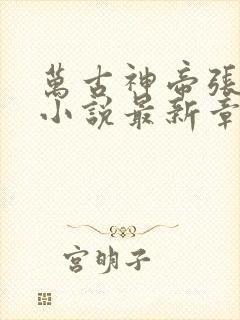 萬古神帝張
小說最新章
宮明子